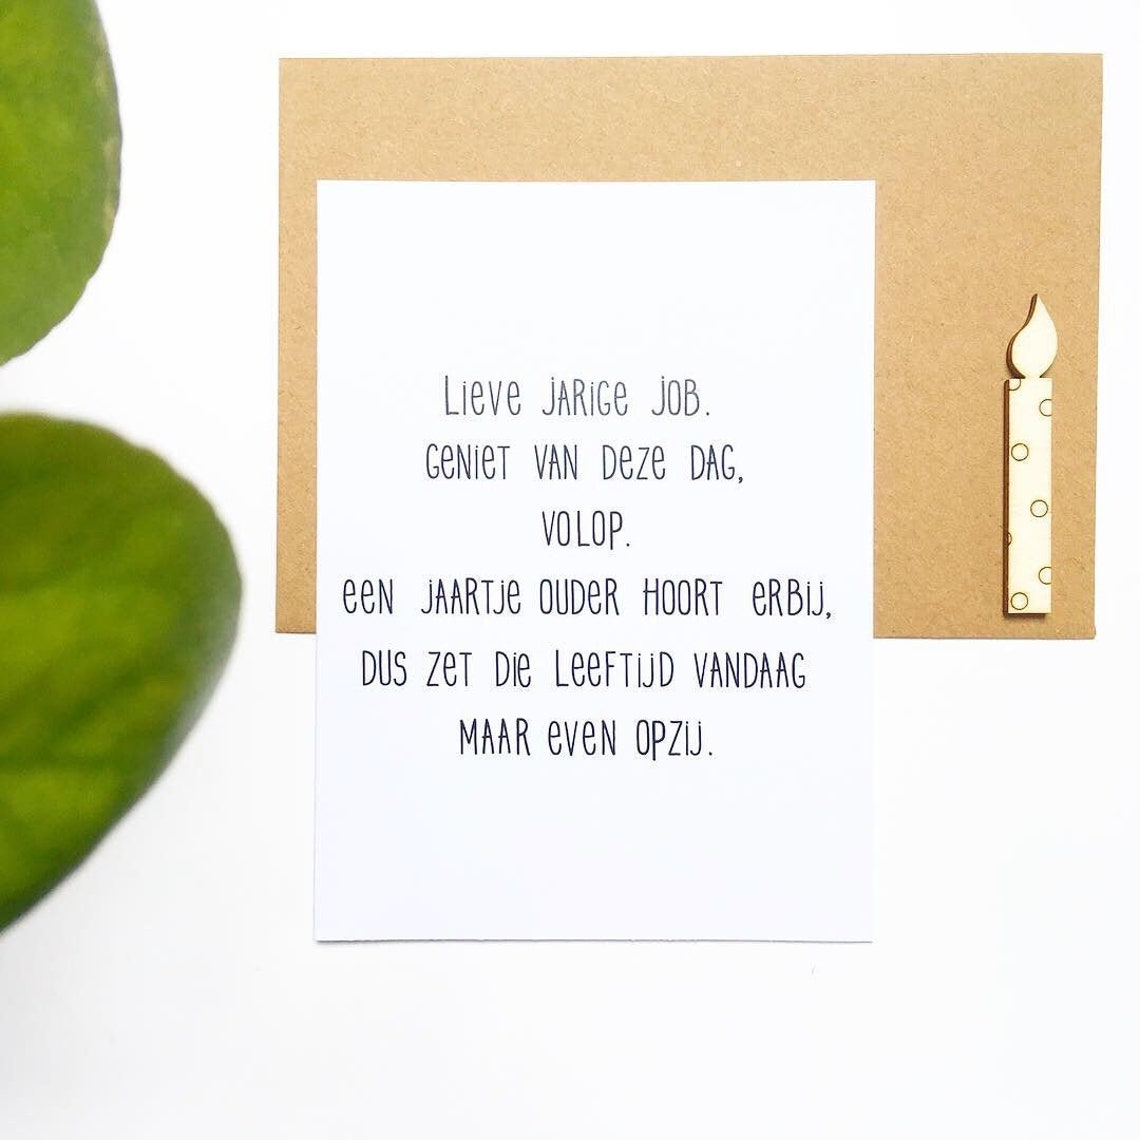 Lieve jarige Job.
Geniet van deze dag,
volop.
Een jaartje ouder hoort erbij,
dus zet die leeftijd vandaag
maar even opzij.